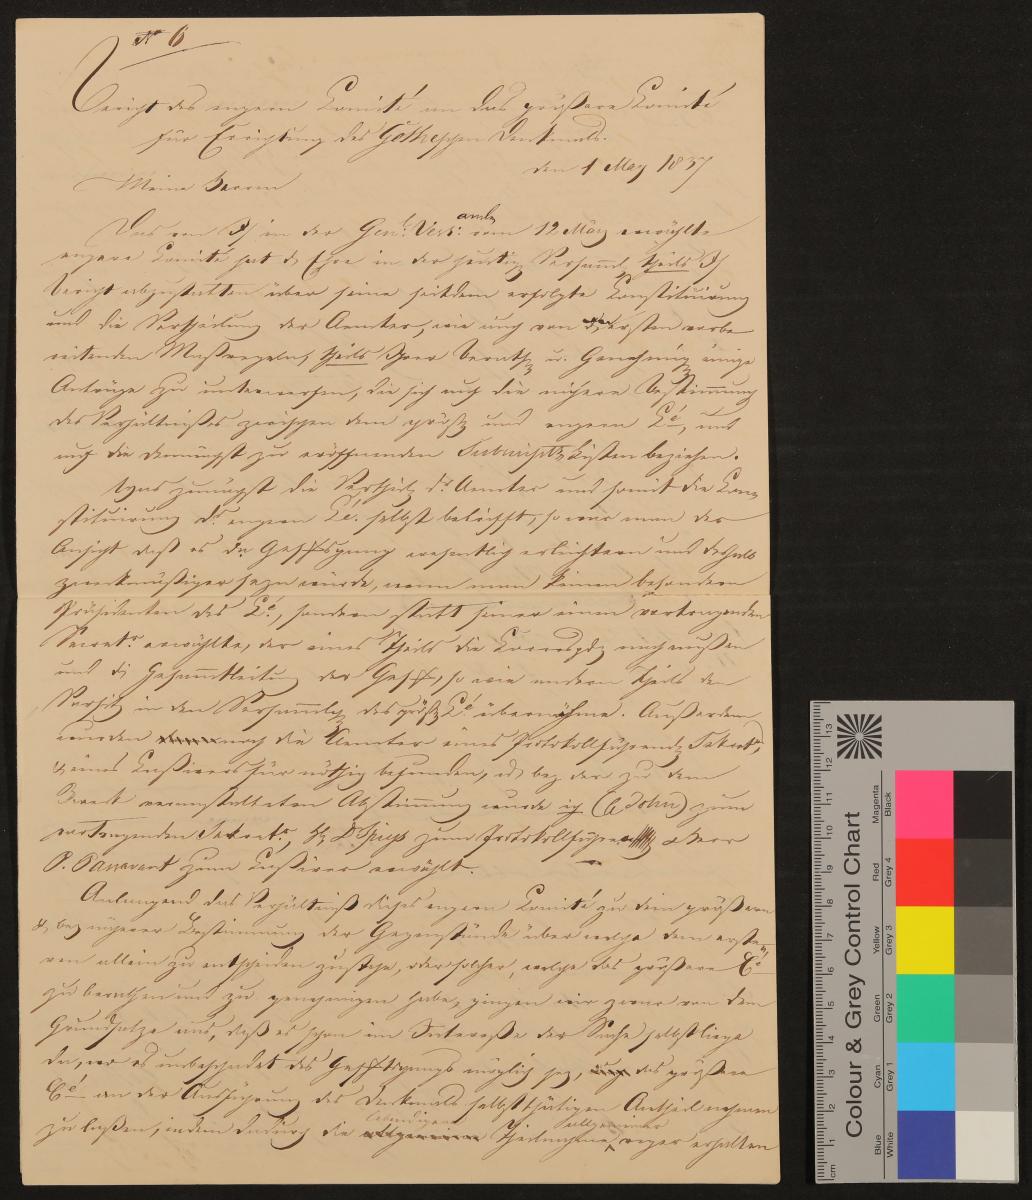 No 6
Bericht des engern Comité an das größere Comité
für Errichtung des Göthe'schen Denkmals.
den 1 May 1837
Meine Herren
Das von Ih in der Genl. Vers. vom 12 März erwählte
engere Comité hat d Ehre in der heutig Versamml theils Ih
Bericht abzustatten über seine seitdem erfolgte Constituirung
und die Vertheilung der Aemter, wie auch von den ersten vorbe
reitenden Maßregeln, theils Ihrer Berathg u. Genehmigg einige
Anträge zu unterwerfen, die sich auf die nähere Bestimmung
des Verhältnißes zwischen dem größn und engern Cé, und
auf die demnächst zu eröffnenden Subscript listen beziehen.
Was zunächst die Vertheilg dr Aemter und somit die Con
stituirung ds engern Cé. selbst betrifft, so war man der
Ansicht daß es dn Geschftsgang wesentlich erleichtern und deshalb
zweckmäßiger seyn würde, wenn man keinen besondern
Präsidenten des Cé, sondern statt seiner einen vortragenden
Secretr. erwählte, der eines Theils die Correspdz nach außen
und d Gesammtleitung der Geschfte, so wie andern Theils den
Vorsitz in den Versammlg des größn Cé übernähme. Außerdem
wurden noch die Aemter eines Protokollführend Sekret
& eines Cassirers für nöthig befunden, u bey der zu dem
Zweck veranstalteten Abstimmung wurde ich zum
vortragenden Sekretr, H D Spieß zum Protokollführer u Herr
P. Passavant zum Cassirer erwählt.
Anlangend das Verhältniß dieses engern Comité zu dem größern
& bey näherer Bestimmung der Gegenstände über welche dem erste
ren allein zu entscheiden zustehe, oder solcher, welche das größere Cé
zu berathen und zu genehmigen habe, gingen wir zwar von dem
Grundsatze aus, daß es schon im Interesse der Sache selbst liege
da, wo es unbeschadet des Geschftsgangs möglich sey, das größere
Cé an der Ausführung des Denkmals selbstthätigen Antheil nehmen
zu laßen, indem dadurch die lebendigere Theilnahme allgemeiner erhalten